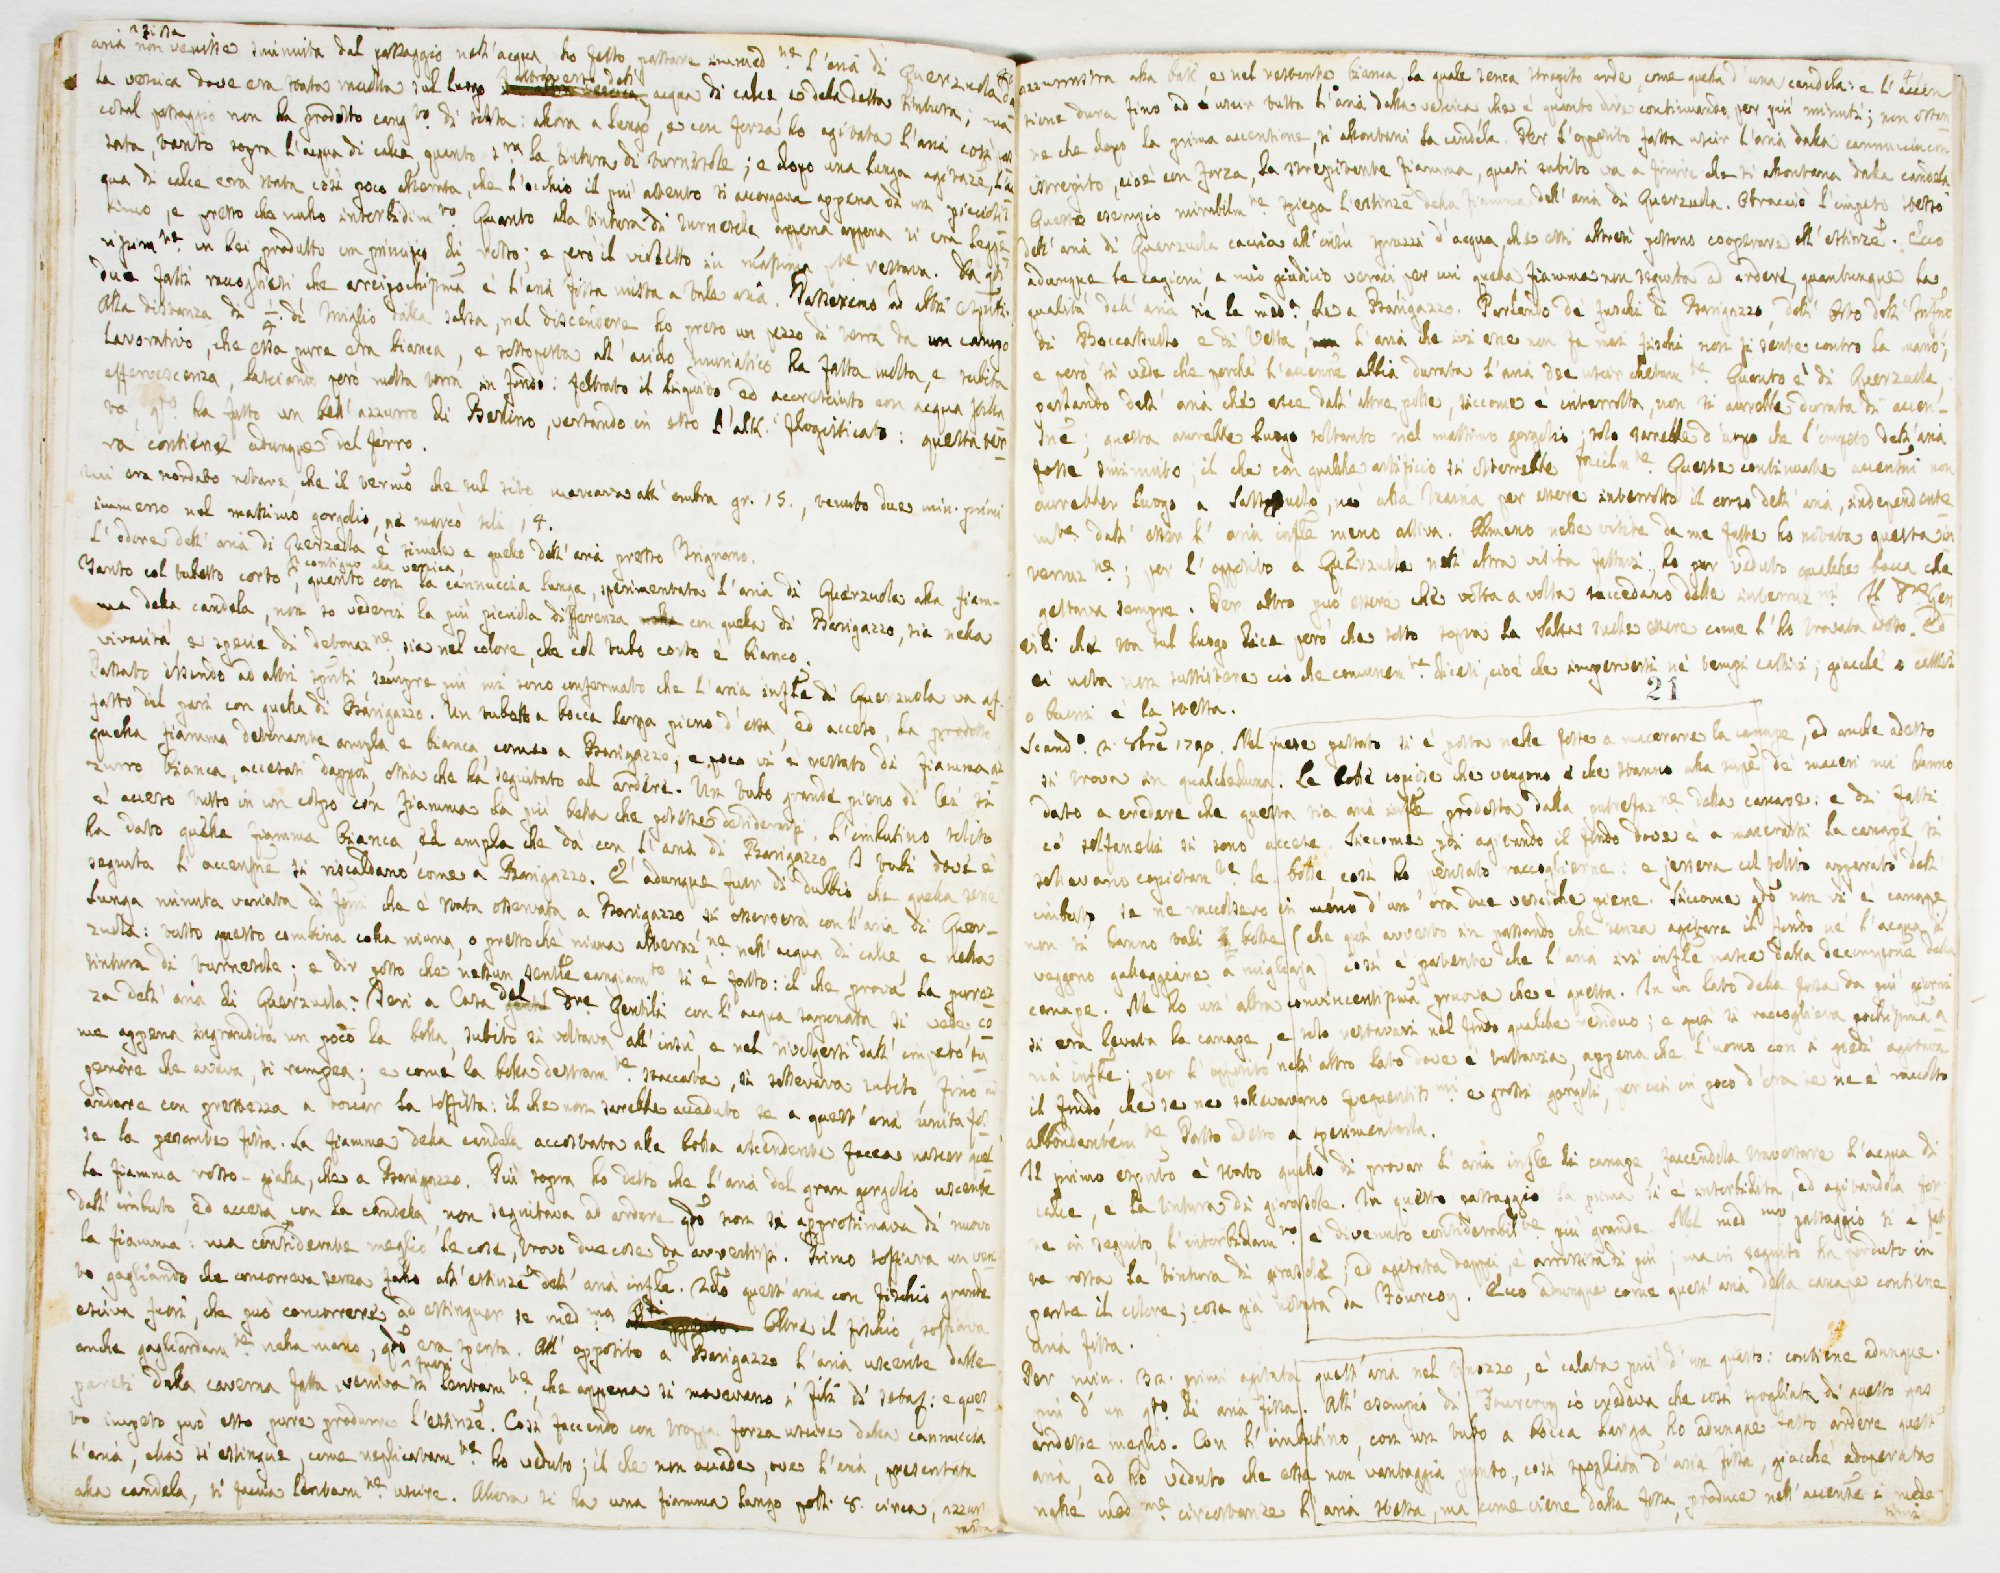 aria fissa non venisse sminuita dal passaggio nell'acqua, ho fatto passare immed.ne l'aria di Querzuola
la vessica dove era stata raccolta sul luogo attraverso dell' acqua di calce e della detta tintura; ma
cotal passaggio non ha prodotto cang.to di sorta: allora a lungo, e con forza ho agitata l'aria così
tanto sopra l'acqua di calce, quanto s.ra la tintura di turnesole; e dopo una lunga agitaze, l'ac
qua di calce era stata così poco alterata, che l'occhio il più attento si accorgeva appena di un piccolis
simo, e presso che nullo interbidim.to Quanto alla tintura di turnesole appena appena si era legge
rissim.ne in lei prodotto un principio di rosso; e però il violetto in massima p.te restava. Da
due fatti raccogliesi che arcipochissma è l'aria fissa mista a tale aria. Passeremo ad altri
Alla distanza di di miglio dalla salsa, nel discendere ho preso un pezzo di terra da un campo
lavorativo, che essa pure era bianca, e sottoposta all'acido muriatico ha fatta molta, e subita
effervescenza, lasciando però molta terra in fondo: feltrato il liquido ed accresciuto con acqua
ta, ha fatto un bell'azzurro di Berlino, versando in esso l'alk. flogisticato: questa ter
ra contiene adunque del ferro.
Mi era scordato notare, che il term.o che sul sito marcava all'ombra gr. 15., tenuto due min. primi
immerso nel massimo gorgolio, ne marcò soli 14.
L'odore dell'aria di Querzuola è simile a quello dell'aria presso Brignano.
Tanto col tubetto corto contiguo alla vessica, quanto con la cannuccia lunga, sperimentata l'aria di Querzuola alla fiam-
ma della candela, non so vederci la più picciola differenza con quella di Barigazzo, sia nella
vivacità, e specie di detonaz.ne, sia nel colore, che col tubo corto è bianco.
Passato essendo ad altri sempre più mi sono confermato che l'aria di Querzuola va af-
fatto del pari con quella di Barigazzo. Un tubetto a bocca larga pieno d'essa ed acceso, ha prodotto
quella fiamma detonante ampla e bianca, come a Barigazzo, e poco vi è restato di fiamma az
zurro bianca, accesasi dappoi, ossia che ha seguitato ad ardere. Un tubo grande pieno di lei si
è acceso tutto in un colpo con fiamma la più bella che potesse desiderarsi. L'imbutino solito
ha dato quella fiamma bianca, ed ampla che dà con l'aria di Barigazzo. I tubi dove è
seguita l'accensne si riscaldano come a Barigazzo. È adunque fuor di dubbio che quella serie
lunga minuta variata di che è stata osservata a Barigazzo si osserverà con l'aria di Quer-
zuola: tutto questo combina colla niuna, o pressochè niuna alteraz.ne nell'acqua di calce e nella
tintura di turnesole; e dir posso che nessun cangiam.to si è fatto: il che prova la purez
za dell'aria di Querzuola. Ieri a Casa del Gentili con l'acqua saponata si vede co
me appena ingrandita un poco la bolla, subito si voltava all'insù, e nel rivolgersi dall'impeto su
periore che aveva, si rompea; e come la bolla destram.te staccata, si sollevava subito, fino ad
andare con prestezza a toccar la soffitta: il che non sarebbe accaduto se a quest'aria unita fos
se la pesante fissa. La fiamma della candela accostata alla bolla ascendente facea nascer quel
la fiamma rosso-gialla, che a Barigazzo. Più sopra ho detto che l'aria del gran gorgolio uscente
dall'imbuto ed accesa con la candela, non seguitava ad ardere non si approssimava di nuovo
la fiamma: ma considerate meglio le cose, trovo due cose da avvertirsi. Primo soffiava un ven
to gagliardo che concorreva senza fallo all'estinze dell'aria. 2do quest'aria con fischio grande
usciva fuori, che può concorrere ad estinguer se med.ma Oltre il fischio, soffiava
anche gagliardam.te nella mano, era spenta. All'opposito a Barigazzo l'aria uscente dalle
pareti della caverna fatta veniva fuori sì lentam.te, che appena si movevano i fili di seta: e ques
to impeto può esso pure produrre l'estinze. Così facendo con troppa forza uscire dalla cannuccia
l'aria, ella si estingue, come replicatam.te ho veduto; il che non accade, ove l'aria, presentata
alla candela, si faccia lentam.ne uscire. Allora si ha una fiamma lunga poll. 8. circa, azzur
rastra
azzurrastra alla base e nel restante bianca, la quale senza strepito arde, come quella d'una candela: e l'accen
sione dura fino ad uscir tutta l'aria dalla vessica che è quanto dire continuando per più minuti; non ostan
te che dopo la prima accensione, si allontani la candela. Per l'opposito fatta uscir l'aria dalla cannuccia con
istrepito, cioè con forza, la strepitante fiamma, quasi subito va a finire che si allontana dalla candela
Questo esempio mirabilm.te spiega l'estinze della fiamma dell'aria di Querzuola. Obraccio l'impeto stesso
dell'aria di Querzuola caccia all'insù spruzzi d'acqua, che essi altresì possono cooperare all'estinze. Ecco
adunque le cagioni, a mio giudicio veraci per cui quella fiamma non seguita ad ardere, quantunque la
qualità dell'aria sia la med.a che a Barigazzo. Parlando de fuochi di Barigazzo, dell'Orto dell'Inferno
di Boccassuolo e di Vetta, l'aria che ivi esce non fa mai fischi, non si sente contro la mano;
e però si vede che perchè l'accensne abbia durata l'aria dee uscir chetam.te Quanto è di Querzuola
parlando dell'aria che esce dall'altre polle, siccome è interrotta, non si avrebbe durata di accen-
sne; questa avrebbe luogo soltanto nel massimo gorgolio, solo sarebbe d'uopo che l'impeto dell'aria
fosse sminuito; il che con qualche artificio si otterrebbe facilm.te Queste continuate accensni non
avrebber luogo a Sassuolo, nè alla Maina, per essere interrotto il corso dell'aria, independente
m.te dall'esser l'aria meno attiva. Almeno nelle visite da me fatte ho notata questa in
terruz.ne; per l'opposito a Querzuola nell'altra visita fattavi, ho pur veduto qualche bocca che
gettava sempre. Per altro può essere che volta a volta succedano delle interruz.ni Il Gen
tili che sta sul luogo dice però che sotto sopra la Salsa suole essere come l'ho trovata adesso. Ed
ei nota non sussistere ciò che comunem.te dicesi, cioè che imperversi ne' tempi cattivi; giacchè o cattivi
o buoni è la stessa.
21
Scand.o 2. 8bre 1790. Nel mese passato si è posta nelle fosse a macerare la canape, ed anche adesso
si trova in qualcheduna. Le bolle copiose che vengono e che stanno alla supe de' maceri mi hanno
dato a credere che questa sia aria prodotta dalla putrefaz.ne della canape: e di fatti
co' solfanelli si sono accese. Siccome poi agitando il fondo dove è a macerarsi la canape si
sollevano copiosam.te le bolle così ho pensato raccoglierne: e jersera col solito apparato dell'
imbuto se ne raccolsero in meno d'un'ora due vessiche piene. Siccome non vi è canape
non si hanno tali bolle (che quì avverto in passando che senza agitare il fondo nè l'acqua si
veggono galleggiare a migliaja) così è patente che l'aria ivi nasce dalla decomposizione della
canape. Ne ho un'altra convincentissma pruova che è questa. In un lato della fossa da più giorni
si era levata la canape, e solo restavavi nel fondo qualche residuo; e quì si raccoglieva pochissima a
ria; per l'opposito nell'altro lato dove è tuttavia, appena che l'uomo con i piedi agitava
il fondo, che se ne sollevavano frequentiss.mi e grossi gorgoli, per cui in poco d'ora se ne è raccolta
abbondantem.te Passo adesso a sperimentarla.
Il primo esperim.to è stato quello di provar l'aria di canape, facendola traversare l'acqua di
calce, e la tintura di girasole. In questo passaggio la prima si è interbidita, ed agitandola
ne in seguito, l'interbidam.to è divenuto considerabil.te più grande. Nel med.mo passaggio si è fat
ta rossa la tintura di girasole, ed agitata dappoi, è arrossita di più; ma in seguito ha perduto in
parte il colore; cosa già notata da Fourcroy. Ecco adunque come quest'aria della canape contiene
aria fissa.
Per min. 32. primi agitata quest'aria nel pozzo, è calata più d'un quarto: contiene adunque
più d'un qto. di aria fissa. All'esempio di Fourcroy io credeva che così spogliata di questo gas
ardesse meglio. Con l'imbutino, con un tubo a bocca larga, ho adunque fatto ardere quest'
aria, ed ho veduto che essa non vantaggia punto, così spogliata d'aria fissa, giacchè adoperata
nelle med.me circostanze l'aria stessa, ma come viene dalla fossa, produce nell'accensne i mede
simi